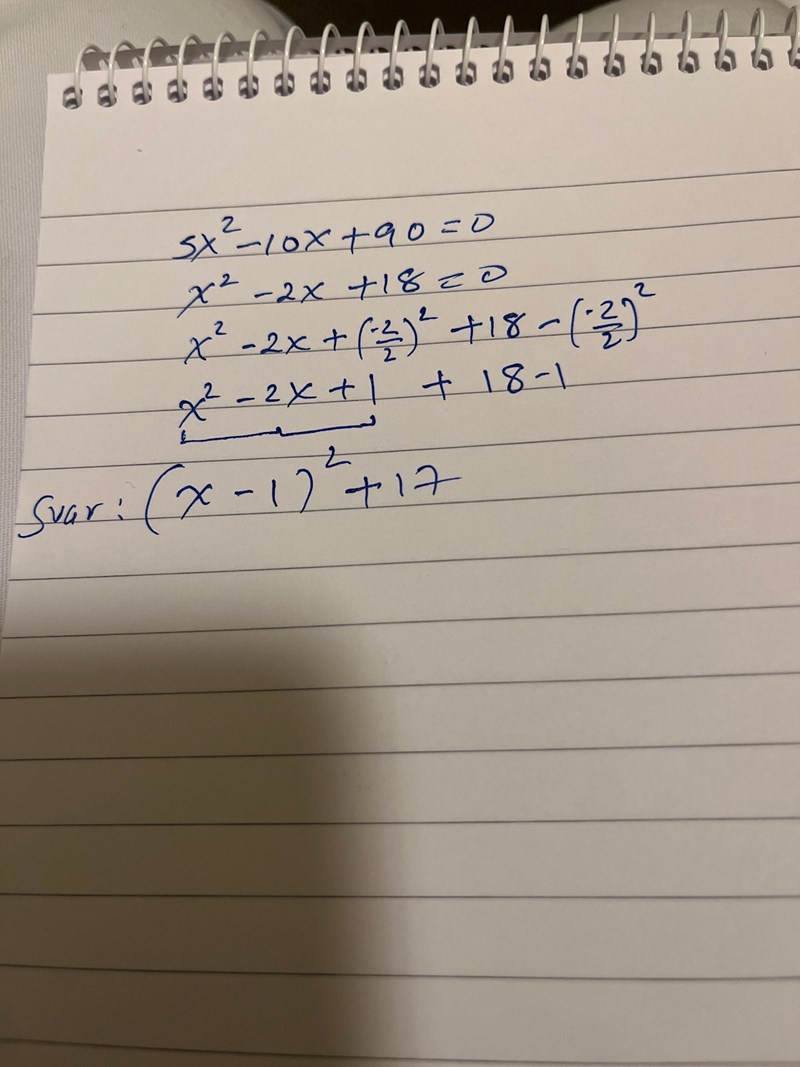 5x² -10x +90 = 0
x² -2x +18 = 0
x² -2x + (-2/2)² +18 - (-2/2)²
x² -2x +1 + 18-1
Svar: (x - 1)² +17